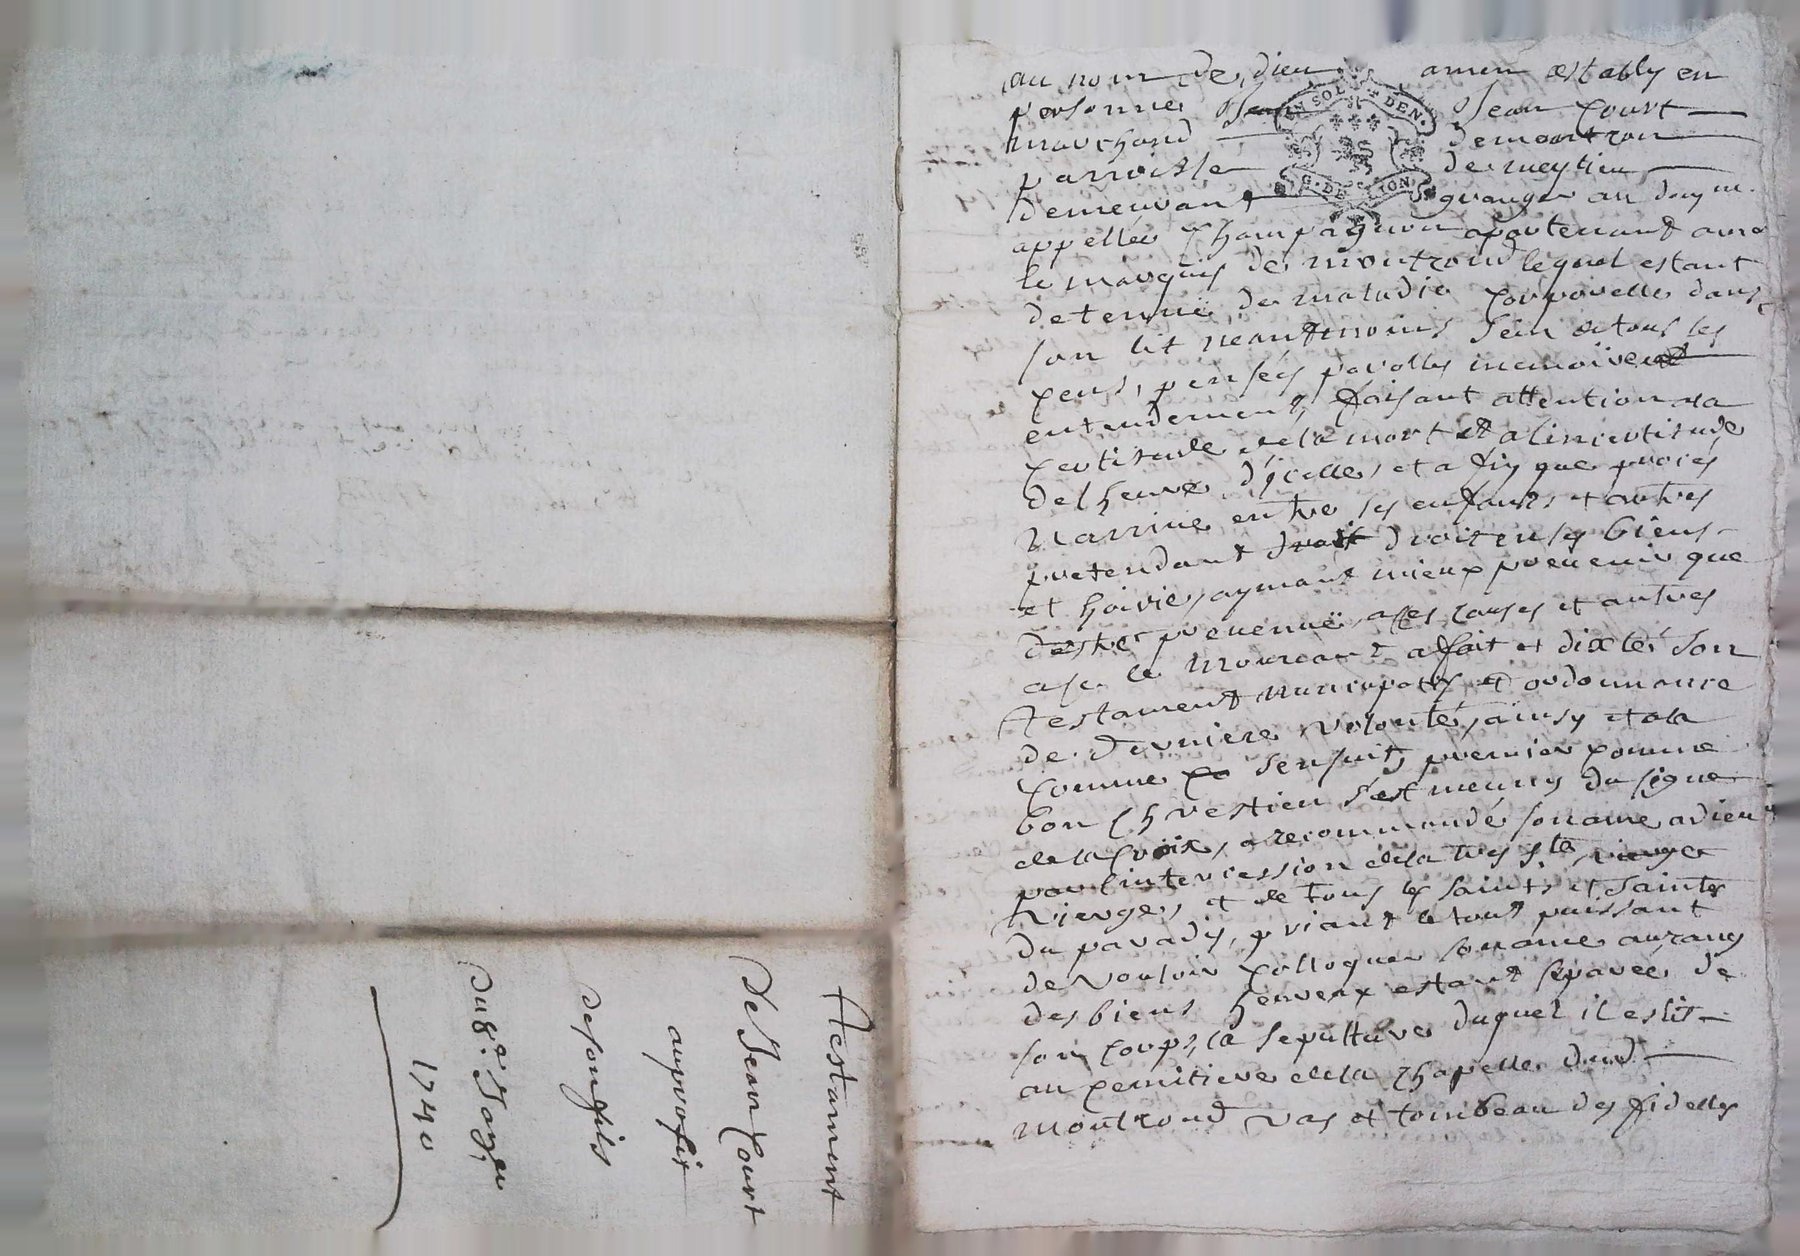 Testament
De Jean Court
auproffit
desonfils
Du 8.e
1740
au nom de dieu amen estably en
personne Jean Court
marchand demontron
parroisse de meytieu
demeurant granger au doy m.
appellée Champagnon apartenant amr
le marquis de montrond lequel estant
detennuë de maladie corporelle dans
son lit neantmoins sein de tous ses
cens, pensées parolles memoire et
entendement, faisant attention ala
certitude dela mort et alincertitude
delheure dycelle, et a fin que proces
narrive entre ses enfants et autres
pretendant droit droit en ses biens
et hoirie, aymant mieux preuenir que
destre preuenuë, a ses causes et autres
a fait et dixté son
testament nuncupatif et ordonnance
de derniere volonté, ainsy
comme ce sensuit, premier comme
bon Chrestien s'est meuny du signe
dela Croix, a recommandé soname adieu
par lintercession dela tres ste vierge
Vierge, et de tous les saints et saintes
du paradis, priant le tout puissant
de vouloir colloquer soname aurang
des biens heureux estant separée de
son corps, la sepulture duquel il eslit
au cemitiere dela chapelle dud
montrond vas et tombeau des fidelles
EN SOL DEN.
G. DE LION